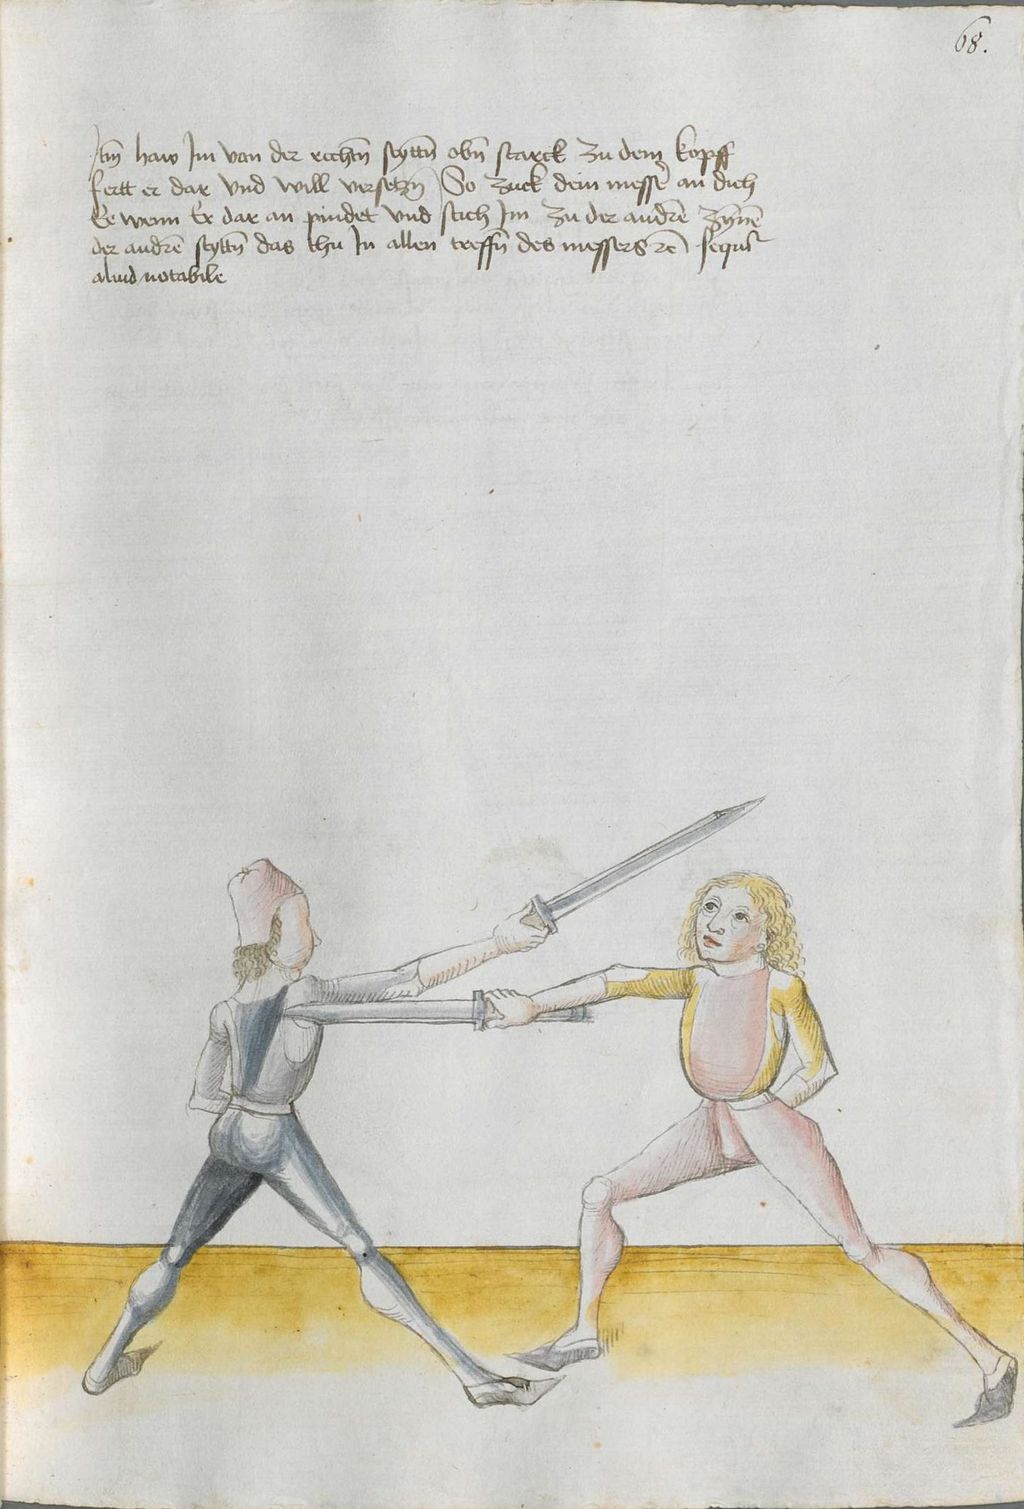 68.
Itm̄ haw Im von der rechtn̄ seyttn̄ obn̄ starck zu dem kopff
fertt er dar vnd will versetzn̄ So zuck dein messer an dich
Ee wenn Er dar an pindet vnd stich Im zu der andrē
der andrē seyttn̄ das thu In allen treffn̄ des messers rē sequir
aliud notabile